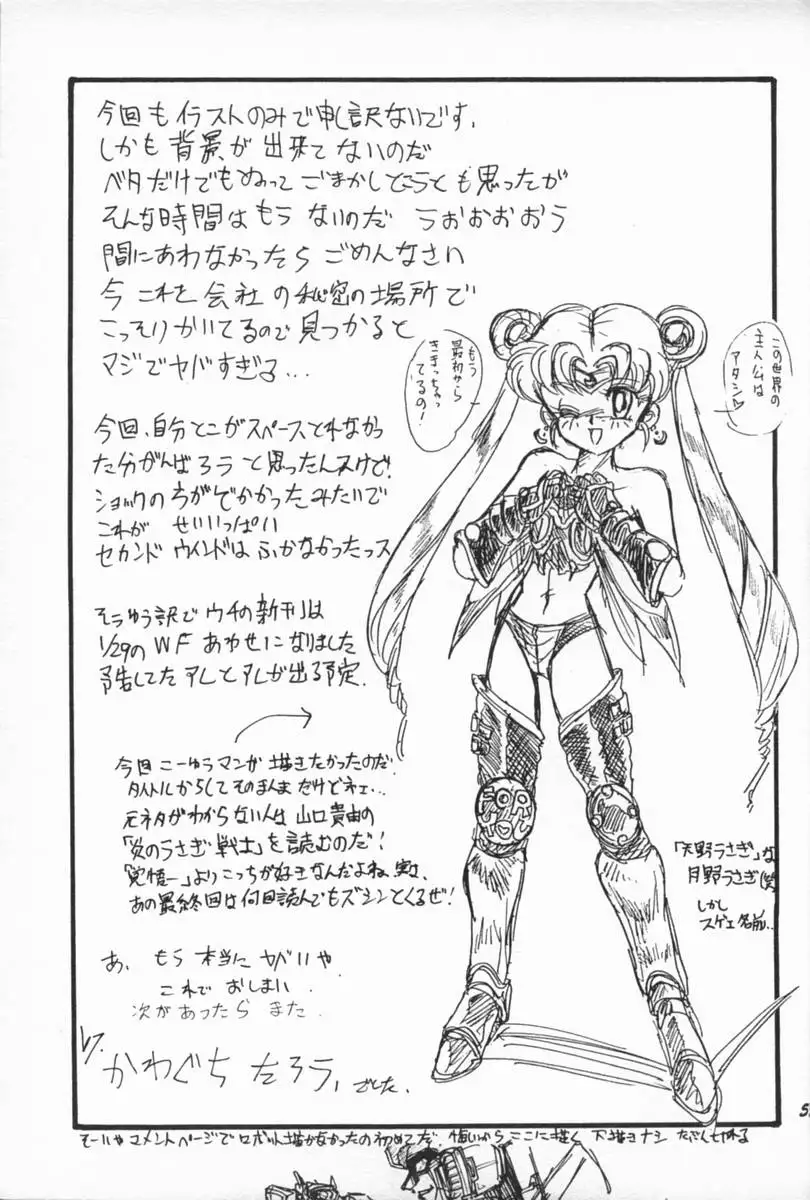 今回もイラストのみで申し訳ないです.
しかも背景が出来てないのだ
ベタだけでもぬってごまかしとこうとも思ったが
そんな時間はもうないのだ うおおおおう
間にあわなかったらごめんなさい
今これを会社の秘密の場所で
こっそりかいてるので見つかると
マジでヤバすぎる...
もう
最初から
きまっちゃっ
てるの!
この世界の
主人公は
アタシ♡
今回、自分とこがスペースとれなかっ
た分がんばろうと思ったんスけど!
ショックのちがでかかったみたいで
これが せいいっぱい
セカンドウインドはふかなかったっス
そーゆう訳でウチの新刊は
1/29のWFあわせになりました
予告してたアレとアレが出る予定.
今回こーゆうマンガ描きたかったのだ!
タイトルからしてそのまんまだけどネェ...
元ネタがわからない人は山口貴由の
「炎のうさぎ戦士」を読むのだ!
「覚悟ー」よりこっちが好きなんだよね、実は、
あの最終回は何回読んでもズシンとくるぜ!
「天野うさぎ」な
月野うさぎ(笑)
しかし
スゲェ名前..
あ、もう本当にヤバいや
これでおしまい.
次があったらまた
かわぐちたろう、でした.
そーいやコメントページでロボット描かなかったの初めてだ. 悔しいからここに描く 下描きナシ